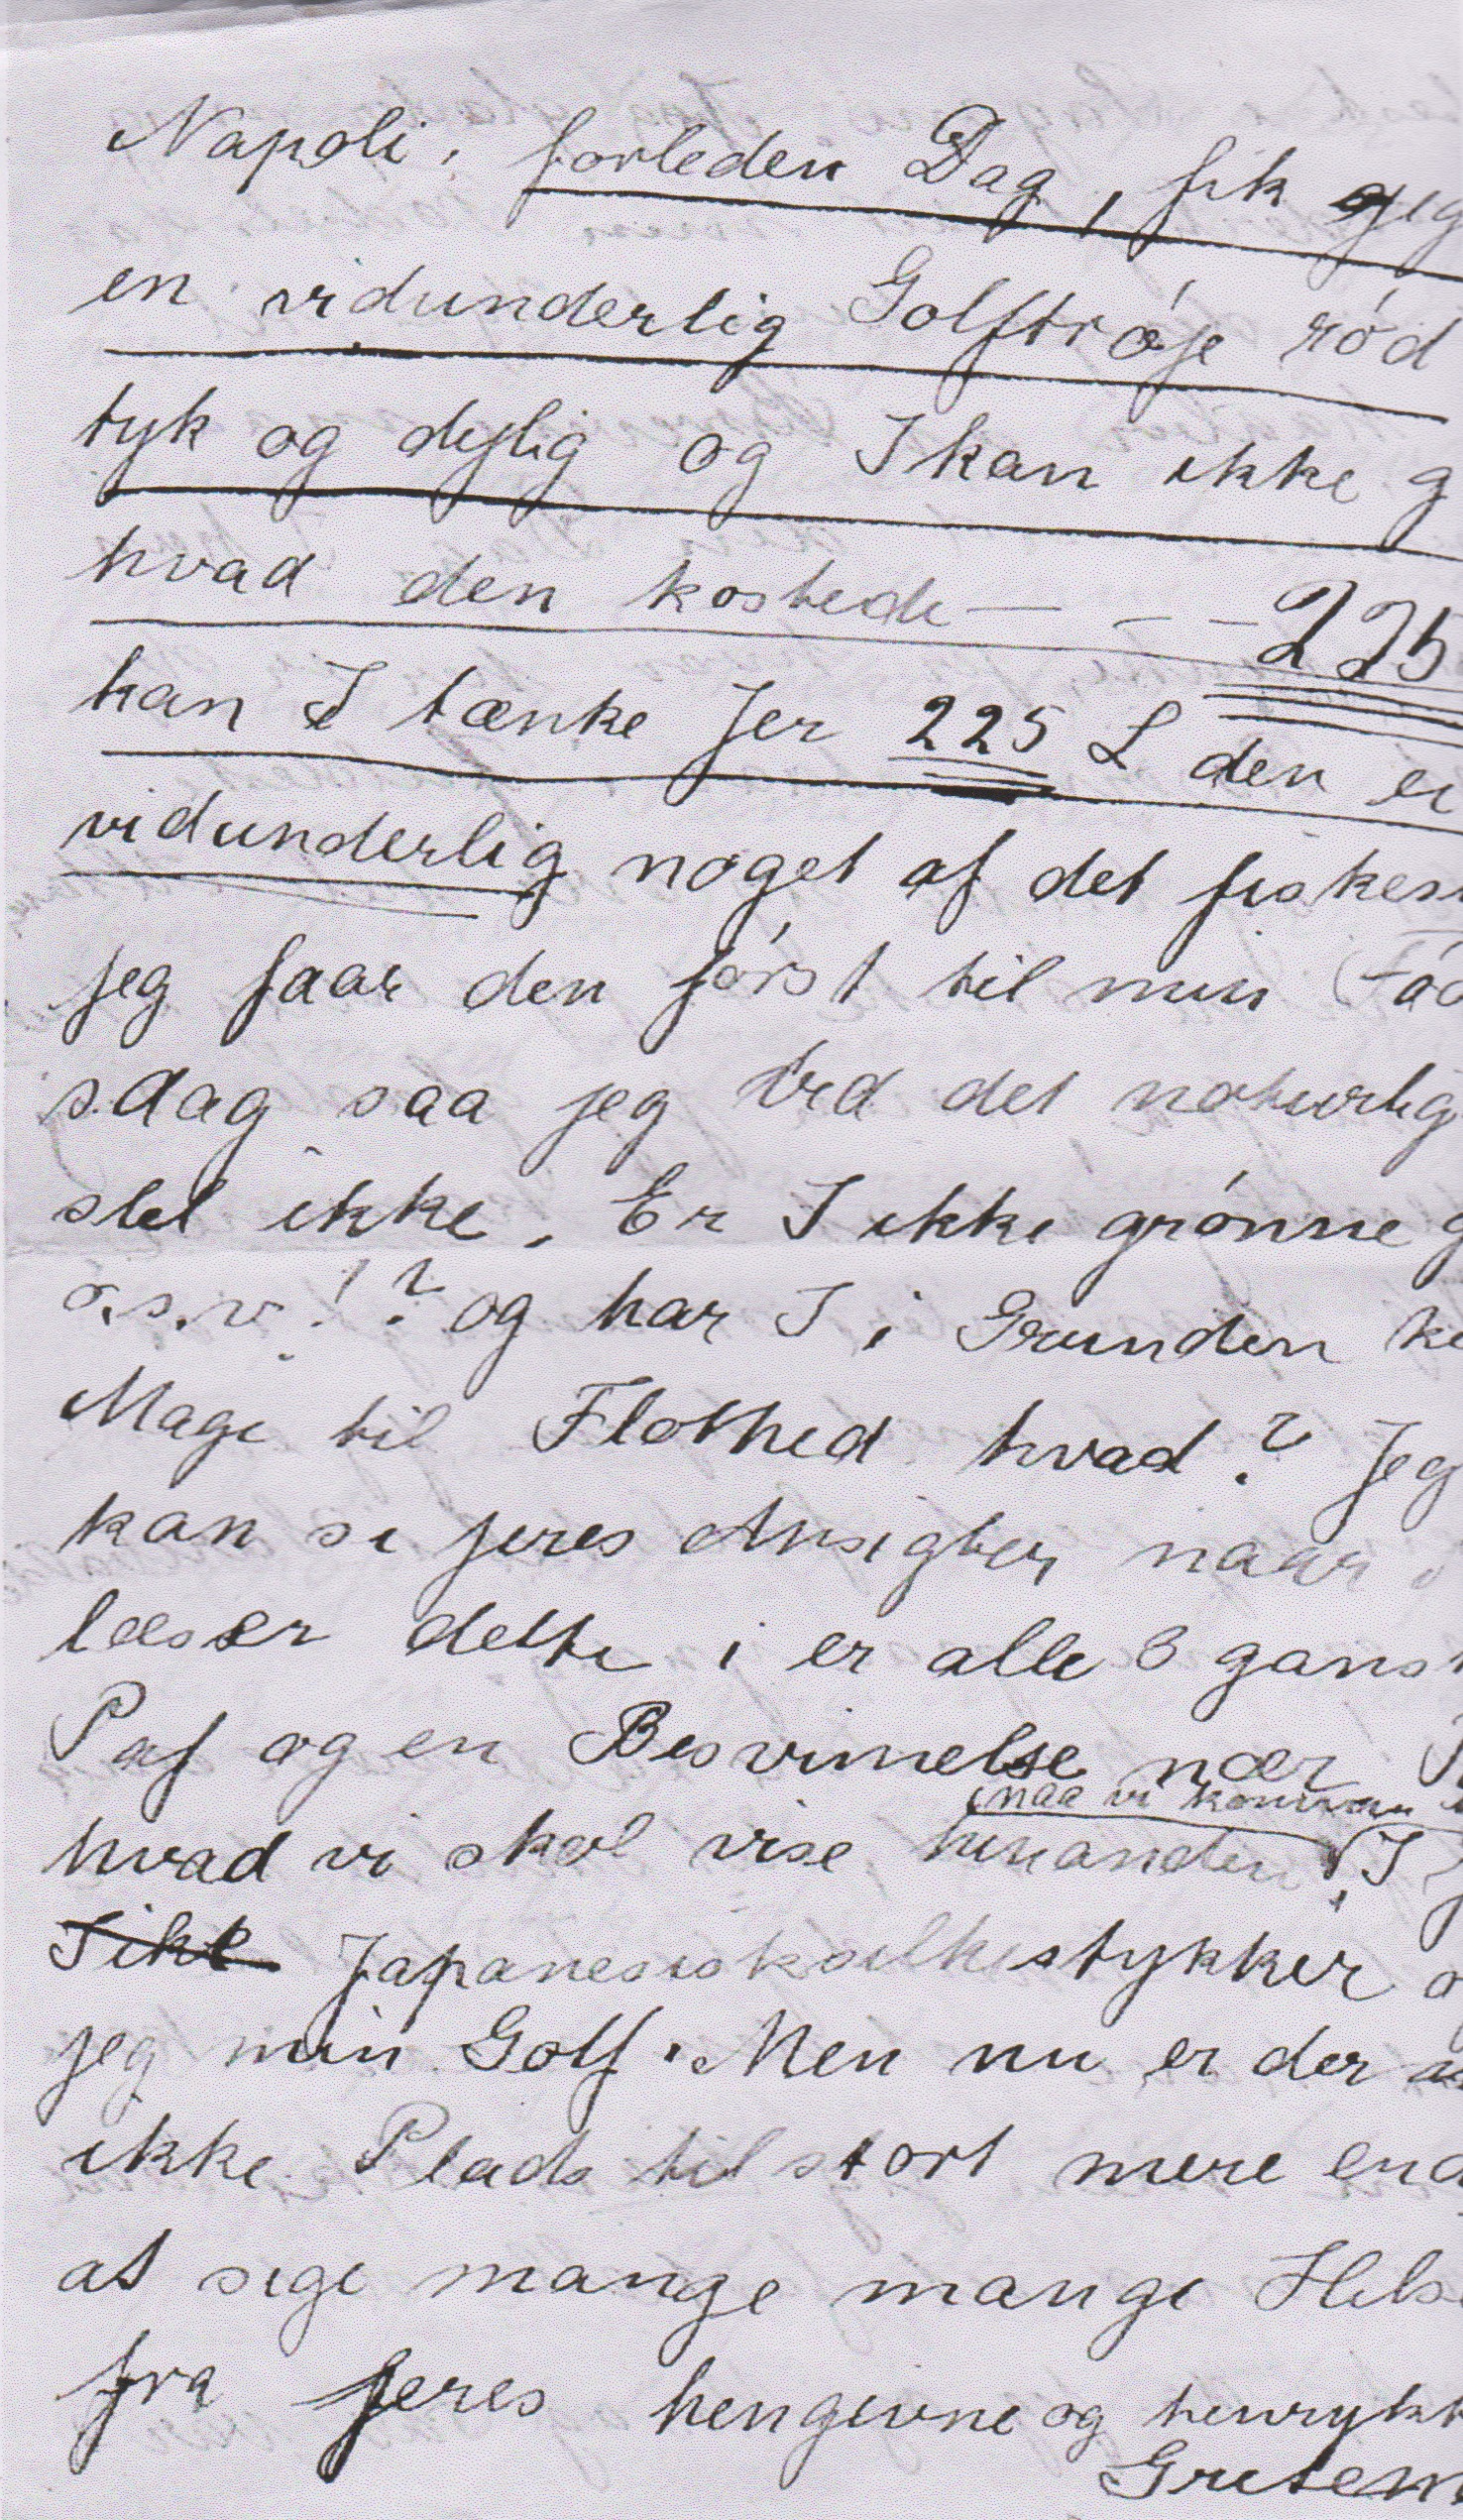 Napoli, forleden Dag, fik jeg
en vidunderlig Golftrøje rød
tyk og dejlig og I kan ikke g
hvad den kostede — – – 225
kan I tænke Jer 225 L den er
vidunderlig noget af det
jeg faar den først til min Fød
sdag saa jeg det naturlig
slet ikke. Er I ikke grønne g
o.s.v!? og har I i Grunden ke
Mage til Flothed hvad? Jeg
kan se jeres Ansigter naar
læser dette i er alle 3 gansk
Paf og en Besvimelse nær
naa vi kommer
hvad vi skal vise hinanden! I
Japanesisksilkestykker o
jeg min Golf. Men nu er der
ikke Plads til stort mere end
at sige mange mange Hils
fra Jeres hengivne og henrykt
Gretem